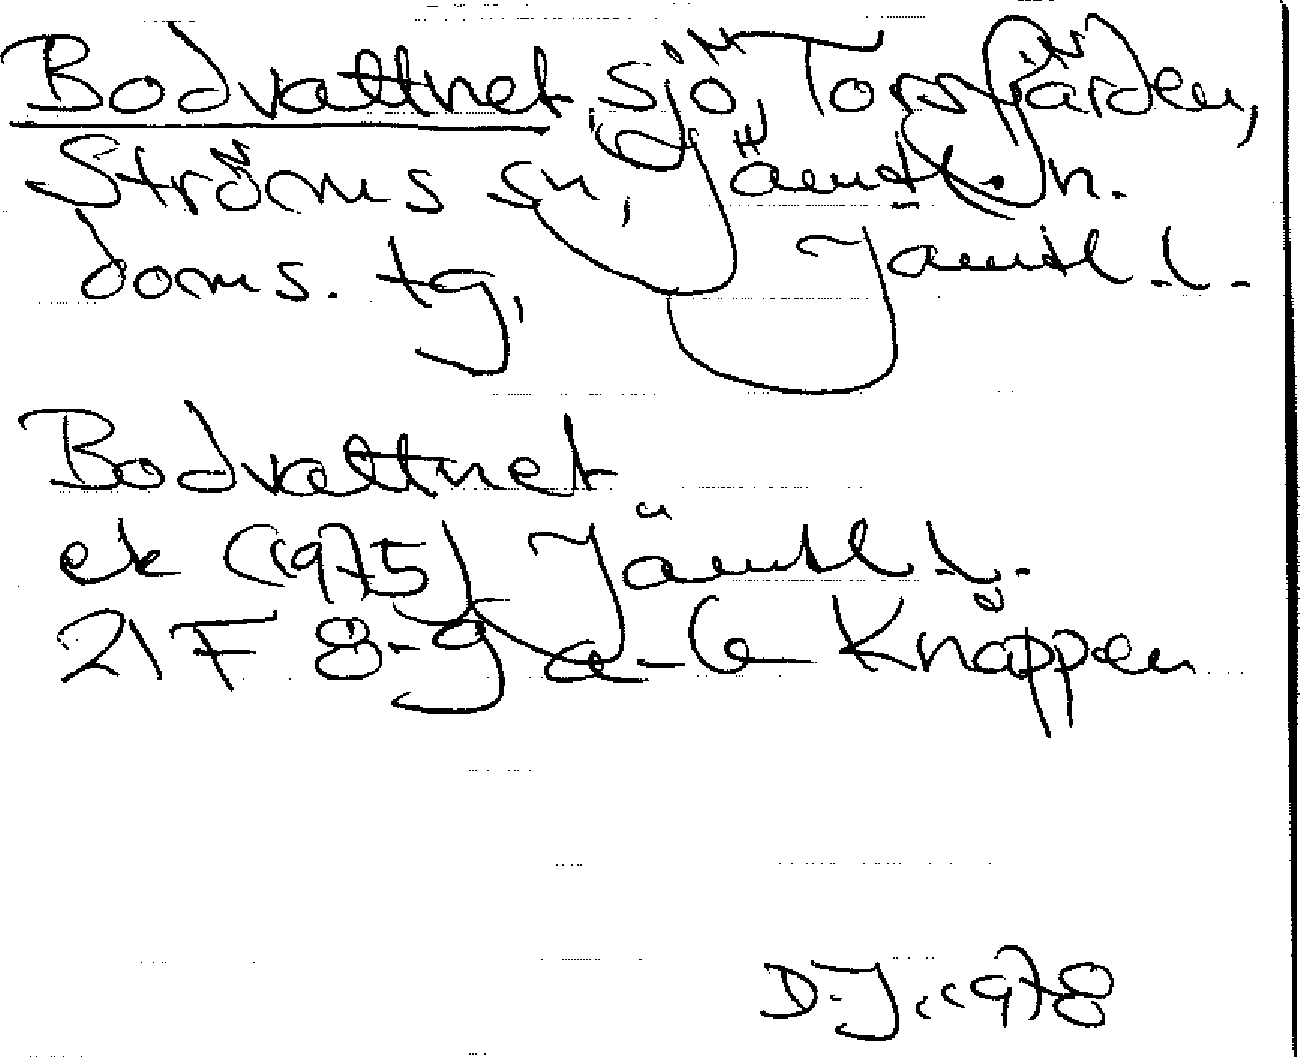 Bodvattnet, sjö, Torsfjärden,
Ströms sn, Jämtl. n.
doms. tg, Jämtl. l.
Bodvattnet
ek (1975) Jämtl. l.
21F 8-9 a-b Knäppen
D.J. 1978